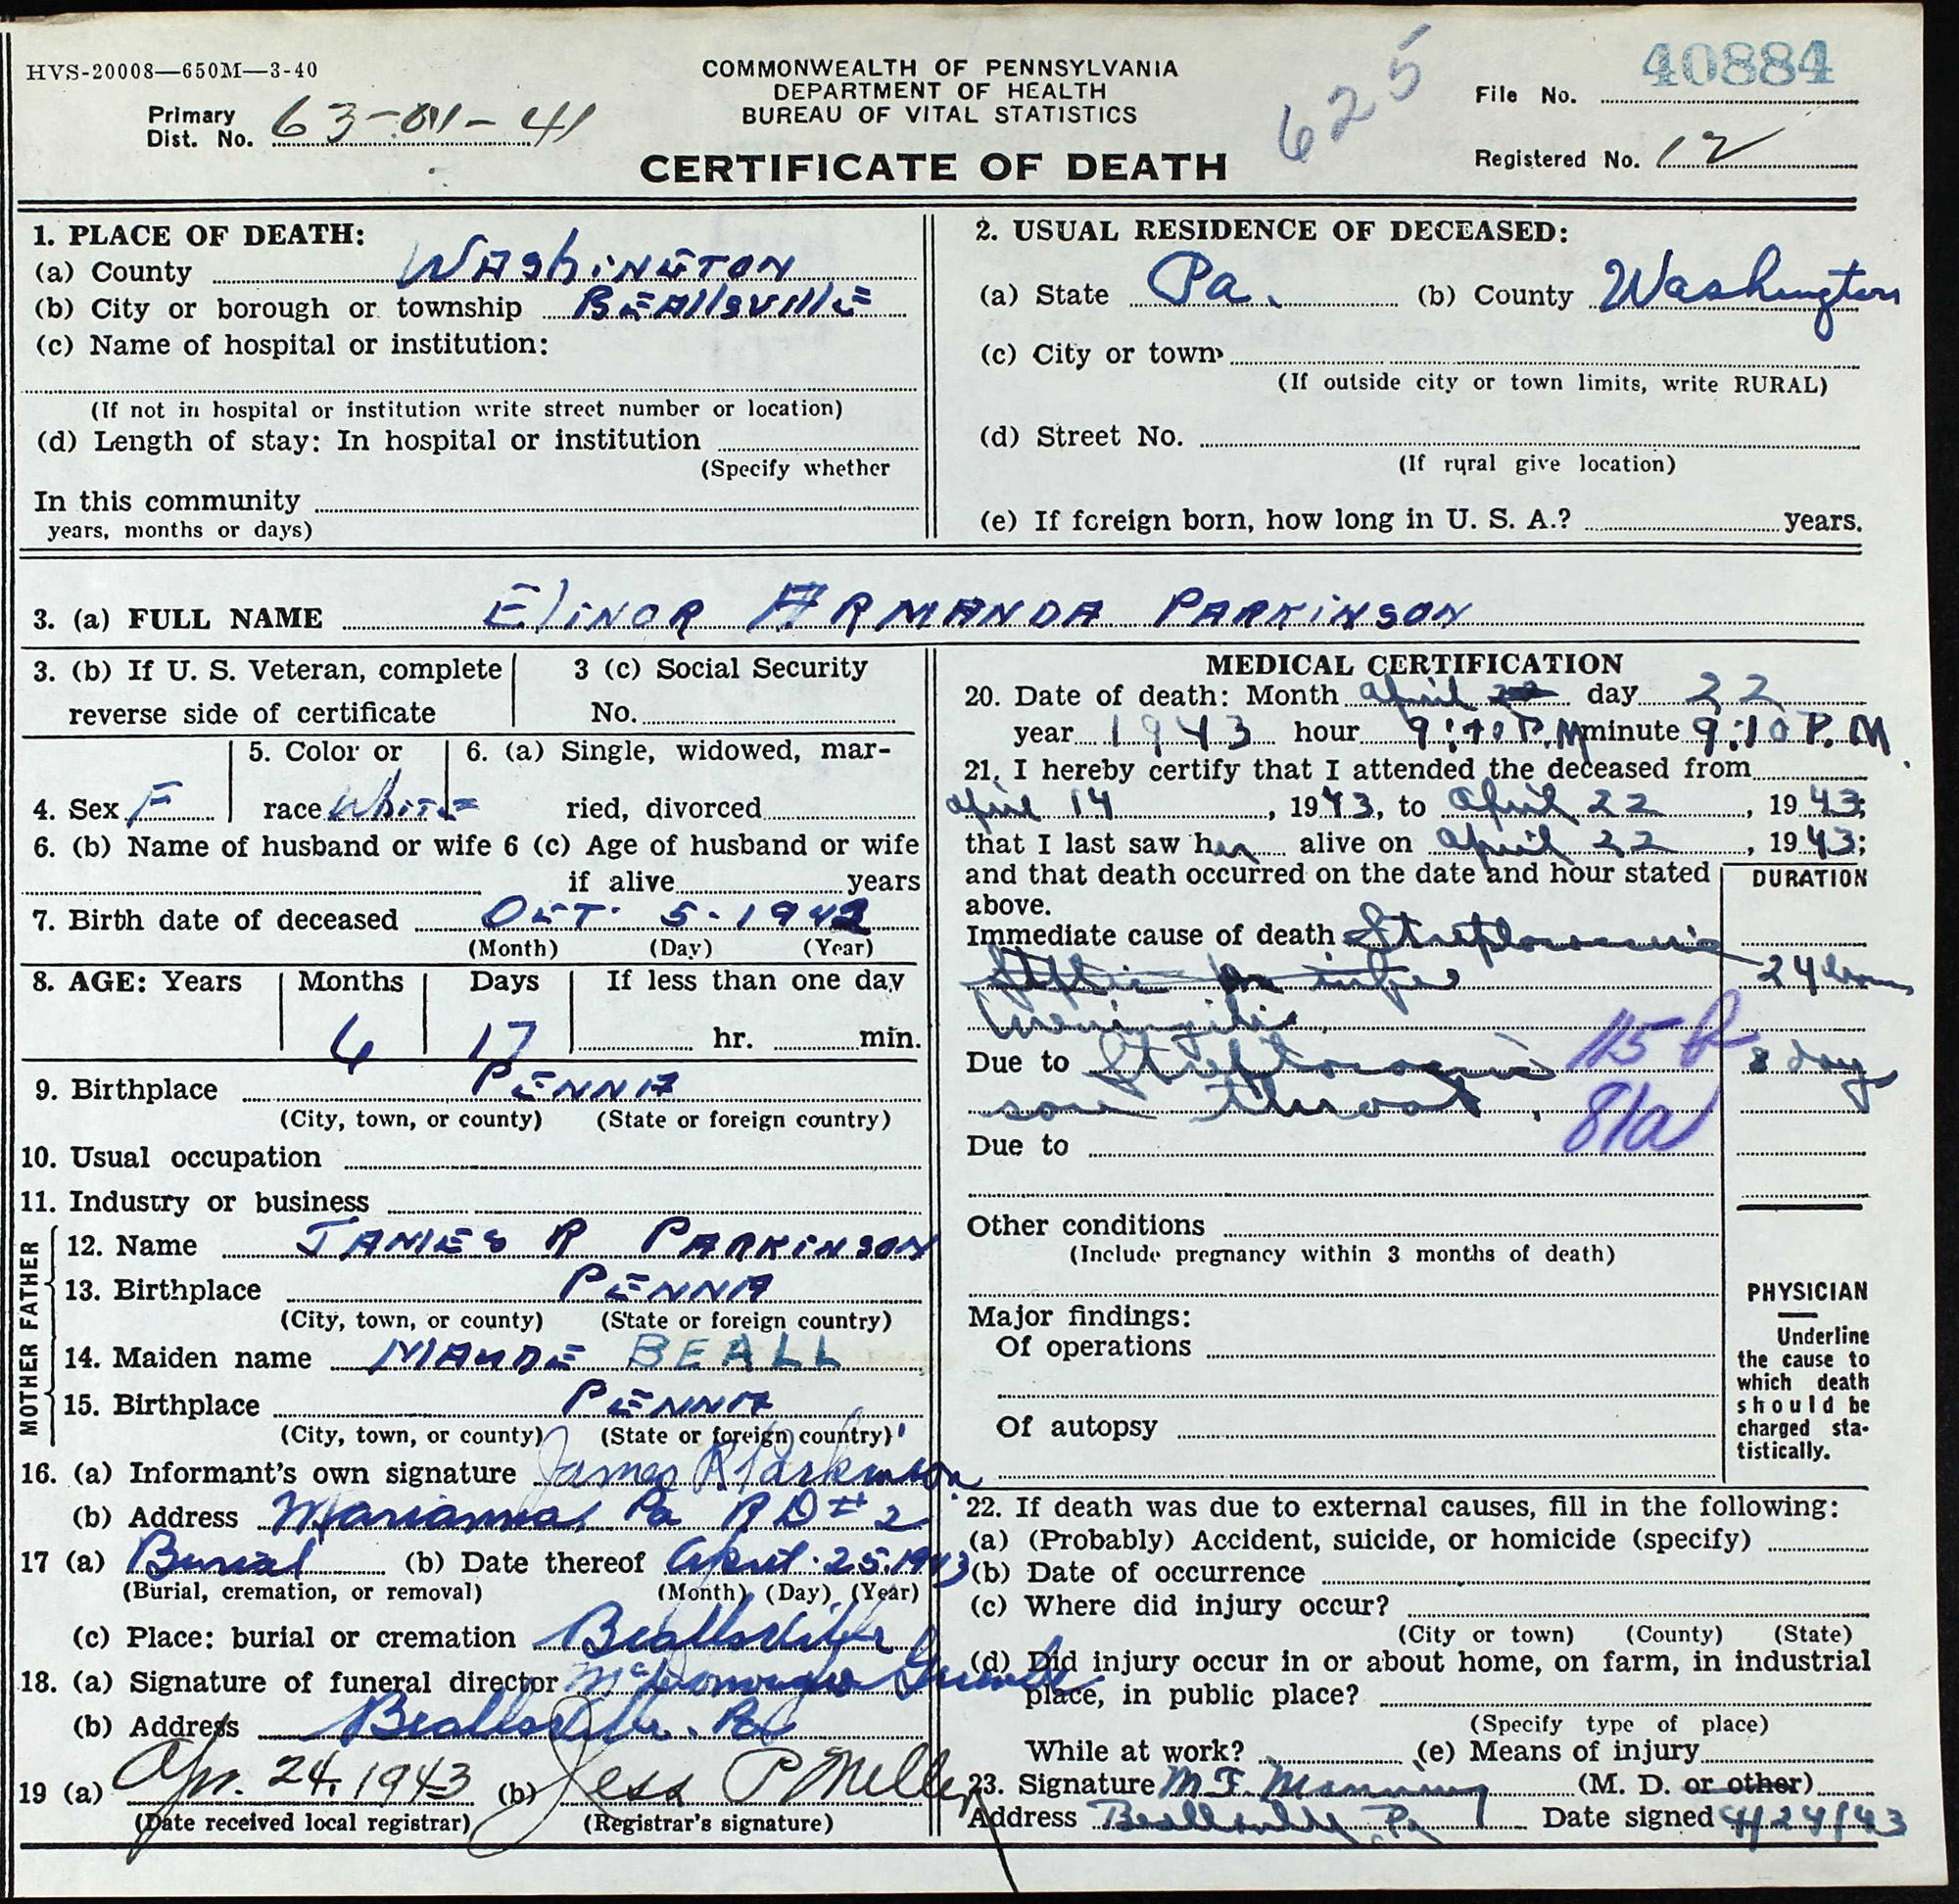 HVS-20008—650M—3-40
COMMONWEALTH OF PENNSYLVANIA
DEPARTMENT OF HEALTH
BUREAU OF VITAL STATISTICS
CERTIFICATE OF DEATH
625
Primary Dist. No. 63-01-41
File No. 40884
Registered No. 12
1. PLACE OF DEATH:
(a) County WAShINGTON
(b) City or borough or township BEAllsvillE
(c) Name of hospital or institution:
(If not in hospital or institution write street number or location)
(d) Length of stay: In hospital or institution
(Specify whether
In this community
years, months or days)
2. USUAL RESIDENCE OF DECEASED:
(a) State Pa. (b) County Washington
(c) City or town
(If outside city or town limits, write RURAL)
(d) Street No.
(If rural give location)
(e) If foreign born, how long in U. S. A.? years.
3. (a) FULL NAME ElINOR ARMANDA PARKINSON
3. (b) If U. S. Veteran, complete
reverse side of certificate
3 (c) Social Security
No.
4. Sex F
5. Color or
race WhITE
6. (a) Single, widowed, mar-
ried, divorced
6. (b) Name of husband or wife 6 (c) Age of husband or wife
if alive years
7. Birth date of deceased OCT. 5-1942
(Month) (Day) (Year)
8. AGE: Years Months Days If less than one day
6 17 hr. min.
9. Birthplace PENNA
(City, town, or county) (State or foreign country)
10. Usual occupation
11. Industry or business
FATHER
12. Name JAMES R PARKINSON
13. Birthplace PENNA
(City, town, or county) (State or foreign country)
MOTHER
14. Maiden name MAUDE BEALL
15. Birthplace PENNA
(City, town, or county) (State or foreign country)
16. (a) Informant's own signature James R Parkinson
(b) Address Marianna, Pa RD # 2
17 (a) Burial (b) Date thereof April. 25. 1943
(Burial, cremation, or removal) (Month) (Day) (Year)
(c) Place: burial or cremation Beallsville
18. (a) Signature of funeral director
(b) Address Beallsville. Pa
19 (a) Apr. 24, 1943 (b) Jess P Miller
(Date received local registrar) (Registrar's signature)
MEDICAL CERTIFICATION
20. Date of death: Month April 22 day 22
year 1943 hour 9:10 P.M minute 9:10 P.M
21. I hereby certify that I attended the deceased from
April 14, 1943, to April 22, 1943;
that I last saw her alive on April 22, 1943;
and that death occurred on the date and hour stated
above.
DURATION
Immediate cause of death
24 hours
Meningitis.
Due to Streptococcic 115 b 8 days
sore throat. 81a
Due to
Other conditions
(Include pregnancy within 3 months of death)
Major findings:
Of operations
Of autopsy
PHYSICIAN
Underline
the cause to
which death
should be
charged sta-
tistically.
22. If death was due to external causes, fill in the following:
(a) (Probably) Accident, suicide, or homicide (specify)
(b) Date of occurrence
(c) Where did injury occur?
(City or town) (County) (State)
(d) Did injury occur in or about home, on farm, in industrial
place, in public place?
(Specify type of place)
While at work? (e) Means of injury
23. Signature M F Manning (M. D. or other)
Address Beallsville Pa Date signed 4/24/43